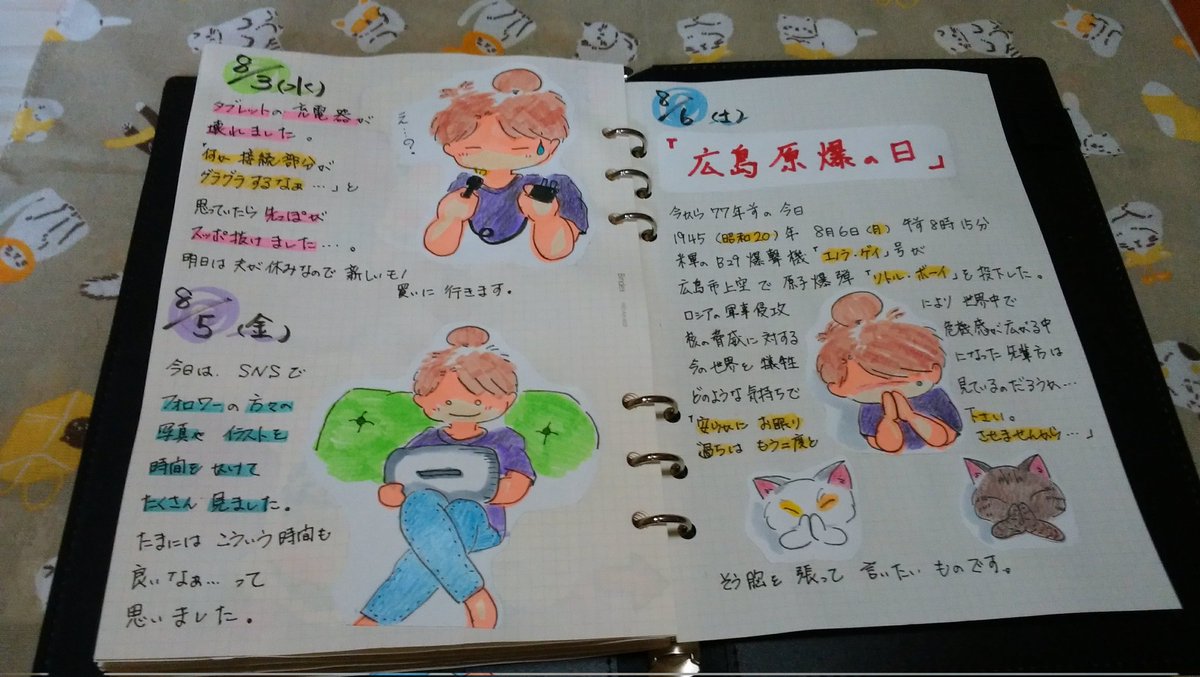 8/3(水)
タブレットの充電器が
壊れました。
「何か接続部分が
グラグラするなぁ…」と
思っていたら先っぽが
スッポ抜けました…。
明日は夫が休みなので新しいモノ
買いに行きます。
え…?
8/5(金)
今日は、SNSで
フォロワーの方々の
写真や イラストを
時間をかけて
たくさん見ました。
たまには こういう時間も
良いなぁ…って
思いました。
8/6(土)
「広島原爆の日」
今から77年前の今日
1945(昭和20)年 8月6日(月) 午前8時15分
米軍のB29爆撃機「エノラ・ゲイ」号が
広島市上空で原子爆弾「リトル・ボーイ」を投下した。
ロシアの軍事侵攻により世界中で
核の脅威に対する危機感が広がる中
今の世界を犠牲になった先輩方は
どのような気持ちで見ているのだろうか…
「安らかにお眠り下さい。
過ちは もう二度とさせませんから…」
そう胸を張って言いたいものです。